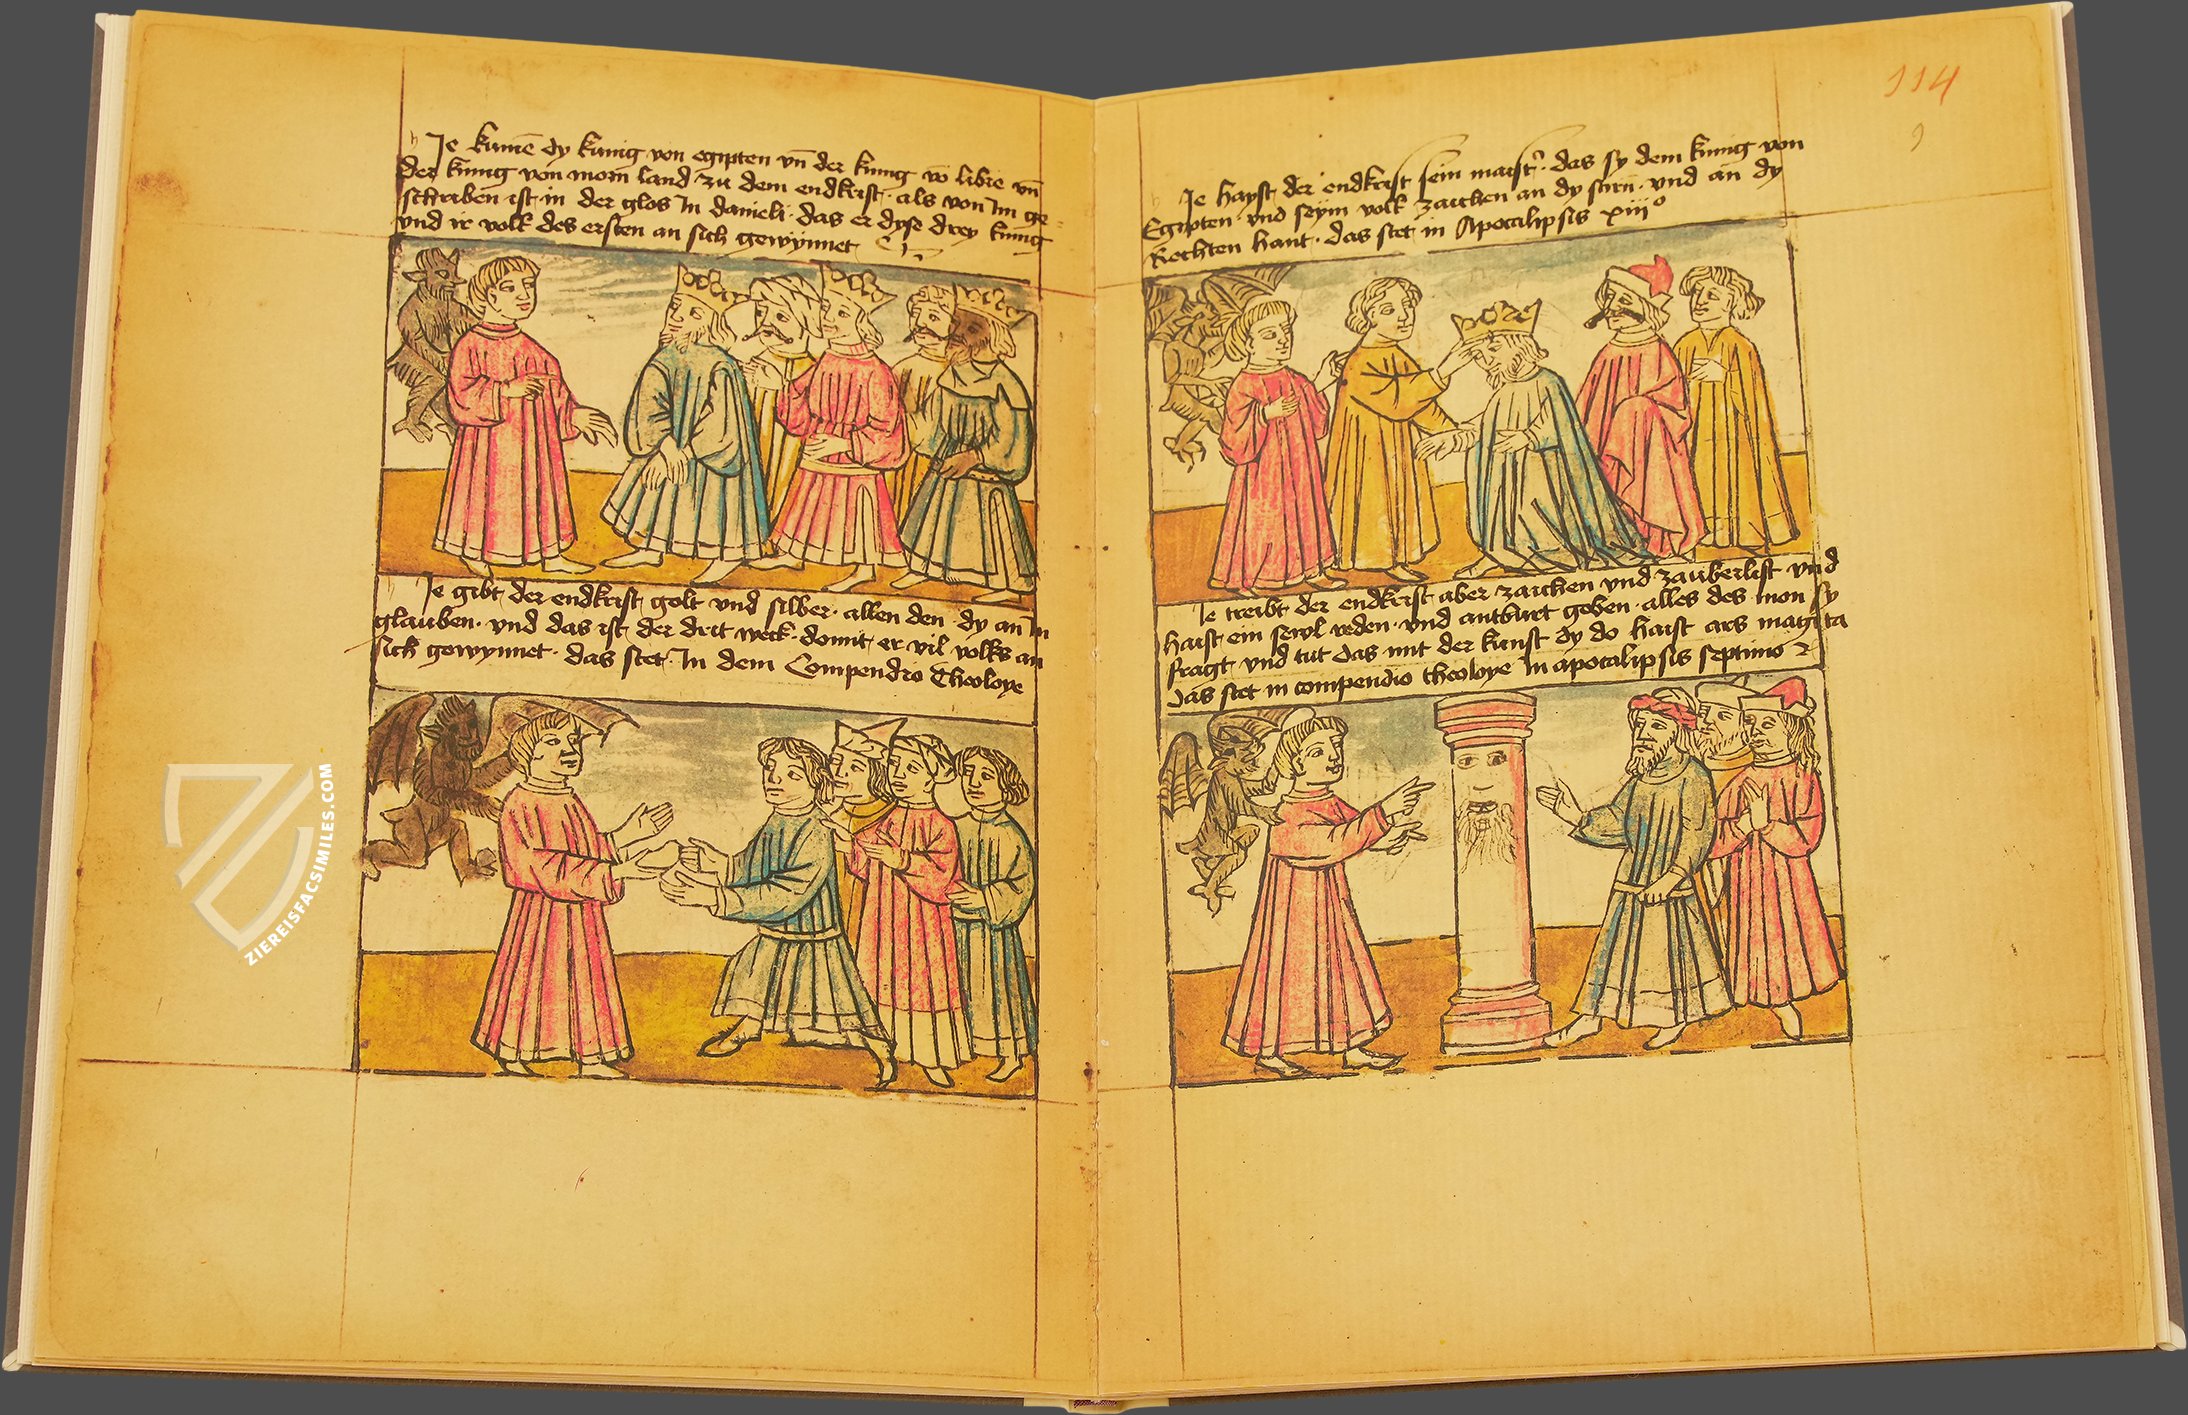 Je kumē dy kunig von egipten vn̄ der kunig vō libie vn̄
Der kunig von morn land zu dem endkrist · als von Im ge-
schriben ist in der glos In danieli · das er dyse drey kunig
vnd ir volk des ersten an sich gewynnet
Je gibt der endkrist golt vnd silber · allen den · dy an In
glauben · vnd das ist der drit weck · domit er vil volks an
sich gewynnet · das stet In dem Compendio Theoloye
114
9
Je hayst der endkrist sein maist · das sy dem kunig von
Egipten · vnd seym volk zaichen an dy stirn · vnd an dy
Rechten hant · das stet in Apocalipsis xiii°
Je treibt der endkrist aber zaichen vnd zauberlist vnd
haist ein sewl reden · vnd antburt geben · alles des mon sy
fragt vnd tut das mit der kunst dy do haist ars magita
Das stet in compendio theoloye In apocalipsis septimo
ZIEREISFACSIMILES.COM